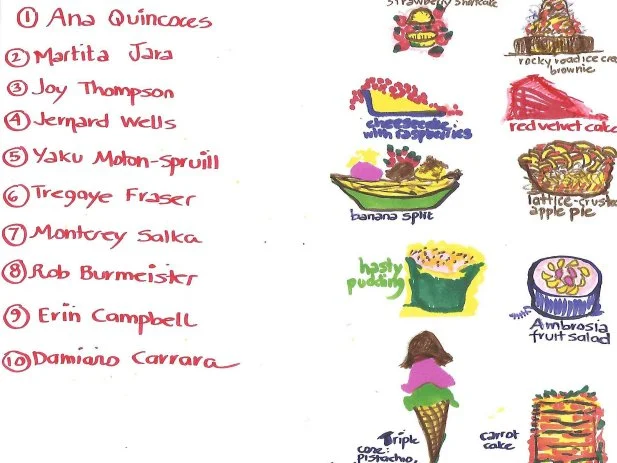 ① Ana Quincoces
② Martita Jara
③ Joy Thompson
④ Jernard Wells
⑤ Yaku Moton-Spruill
⑥ Tregaye Fraser
⑦ Monterey Salka
⑧ Rob Burmeister
⑨ Erin Campbell
⑩ Damiano Carrara
strawberry shortcake
rocky road ice crea
brownie
cheesecake
with raspberries
red velvet cake
banana split
lattice-crusted
apple pie
hasty
pudding
Ambrosia
fruit salad
Triple
cone:
pistachio,
carrot
cake